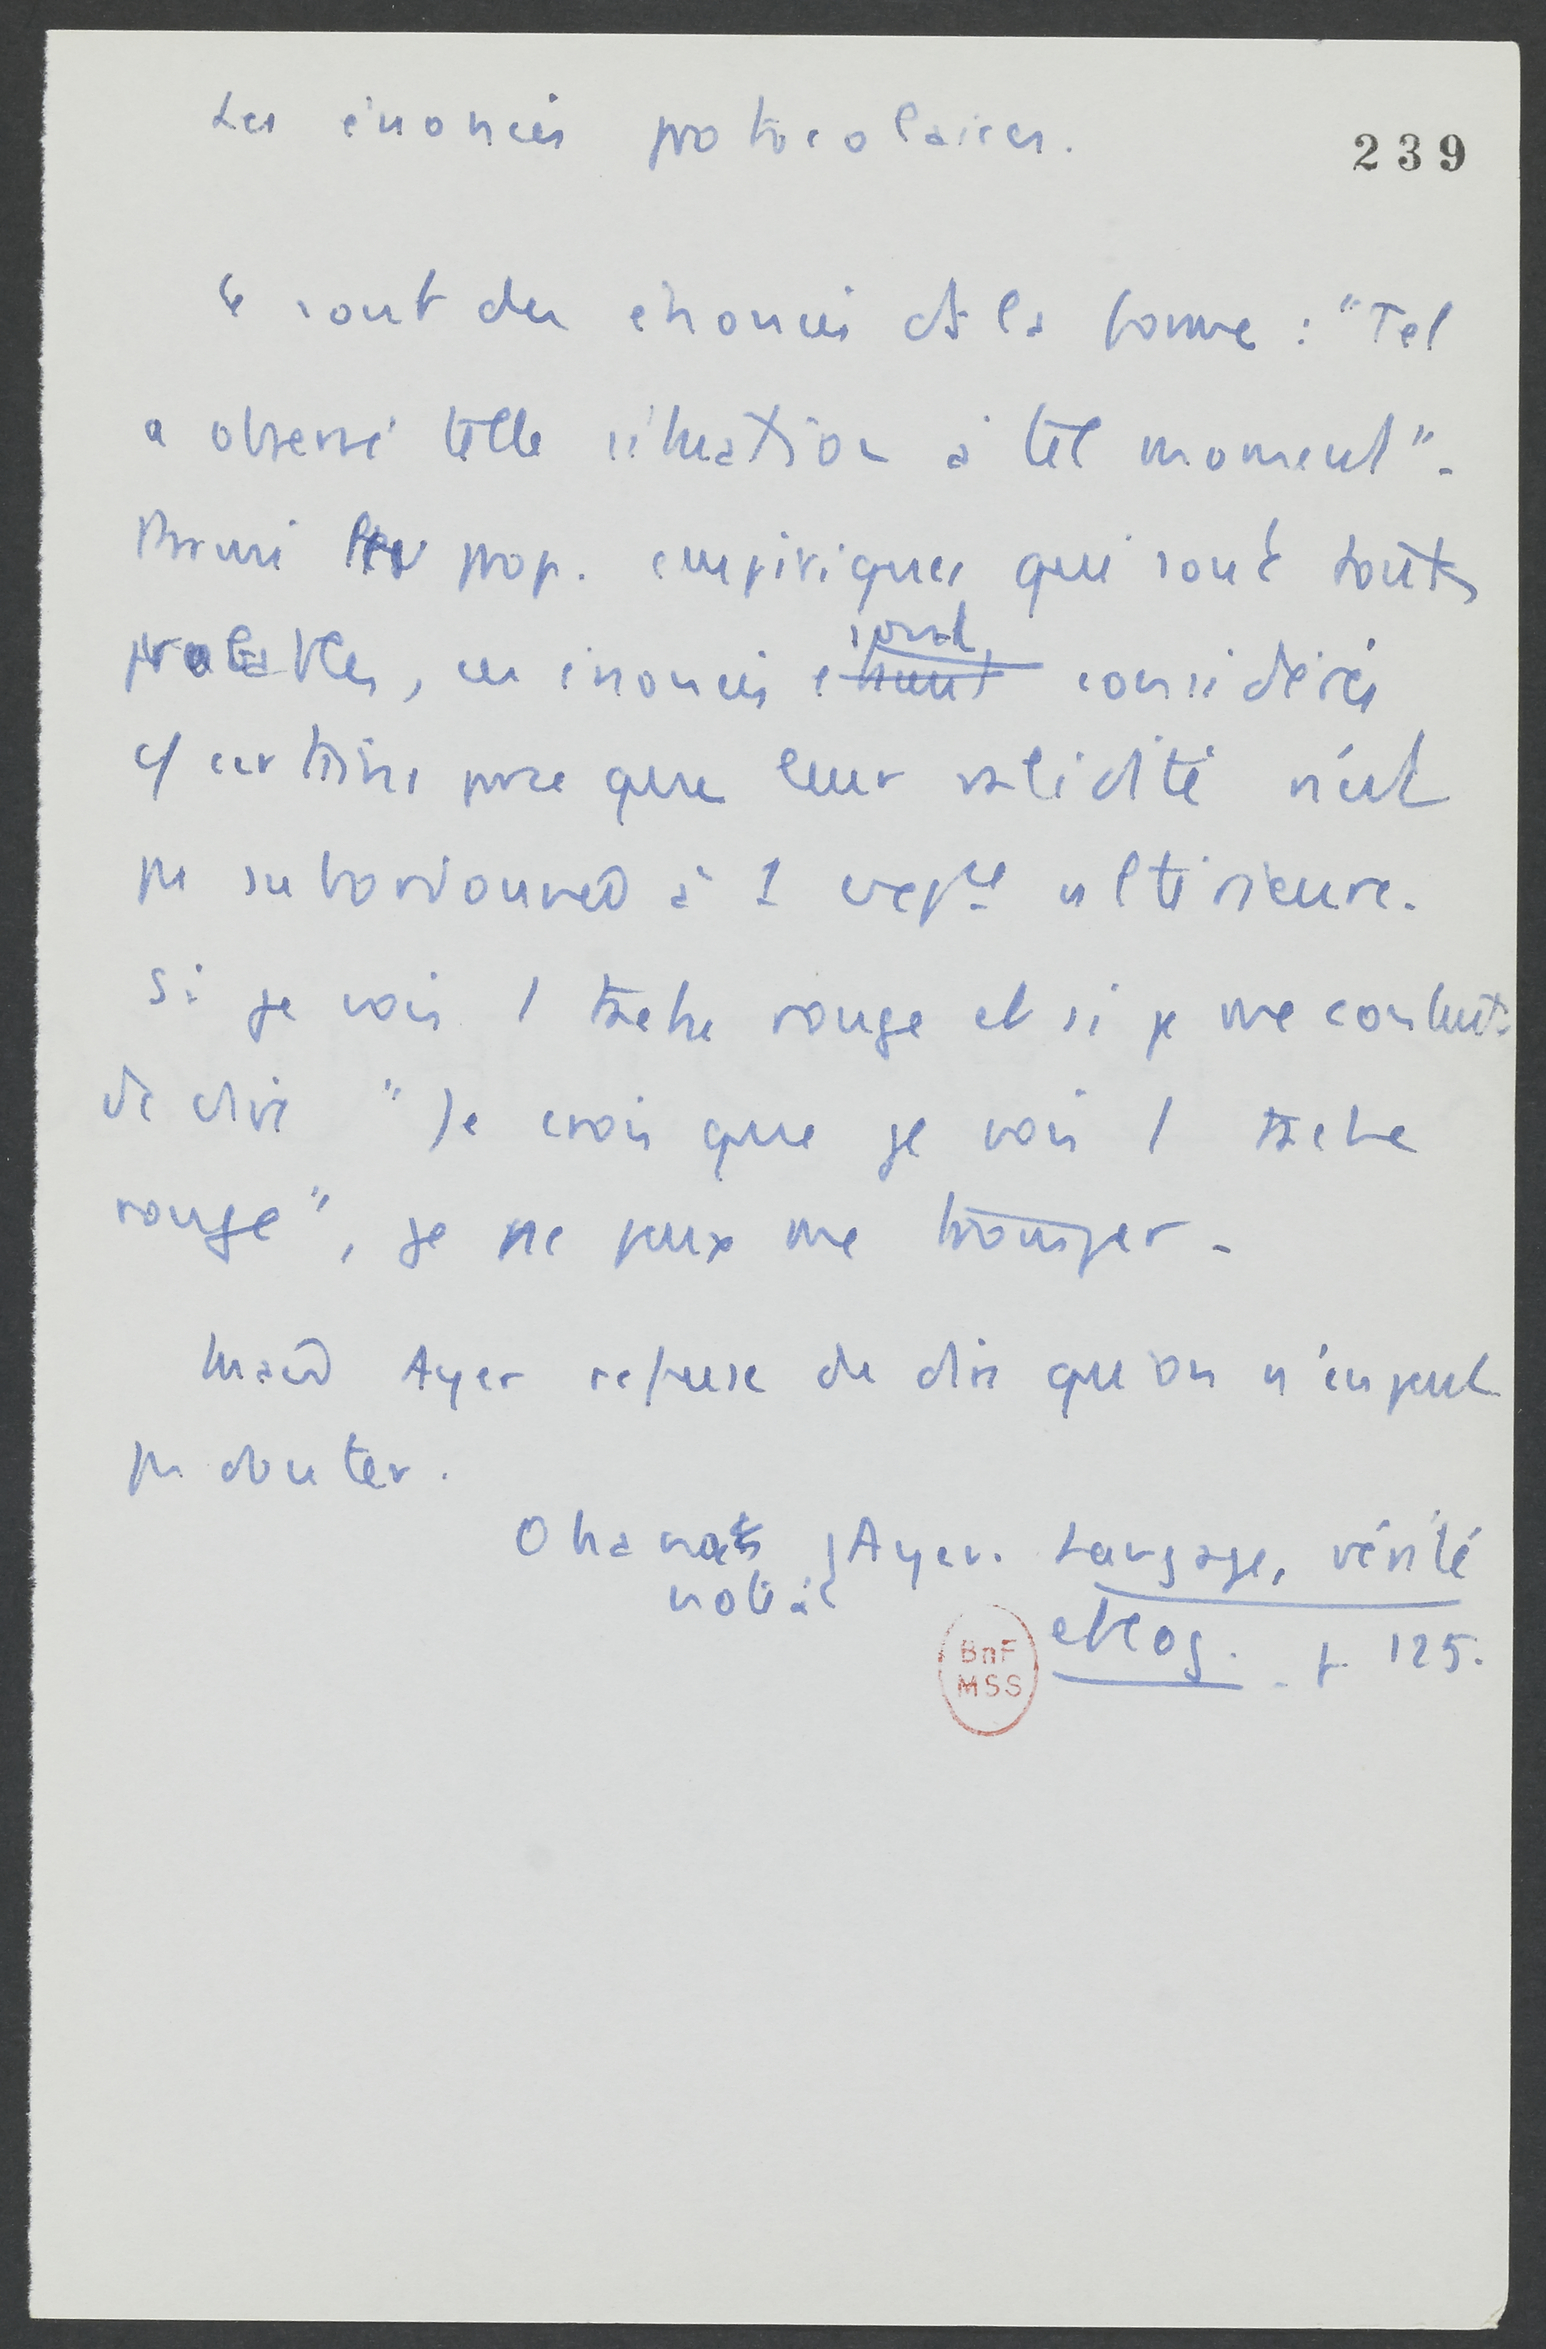 Les énoncés protocolaires.
239
Ce sont des énoncés de la forme : "Tel
a observé telle situation à tel moment".
Parmi les prop. empiriques qui sont toutes
probables, ces énoncés sont considérés
c/ certains parce que leur validité n'est
pas subordonnée à 1 ultérieure.
Si je vois 1 tache rouge et si je me contente
de dire "Je crois que je vois 1 tache
rouge", je ne peux me tromper.
Ayer refuse de dire qu'on n'en peut
pas douter.
Ayer. Langage, vérité
et log. p. 125.
BnF
MSS